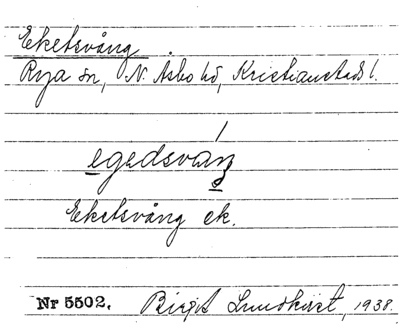 Eketsvång
Rya sn, N. Åsbo hd, Kristianstads l.
egedsvaŋ
Eketsvång ek.
Nr 5502. Birgit Lundkvist, 1938.